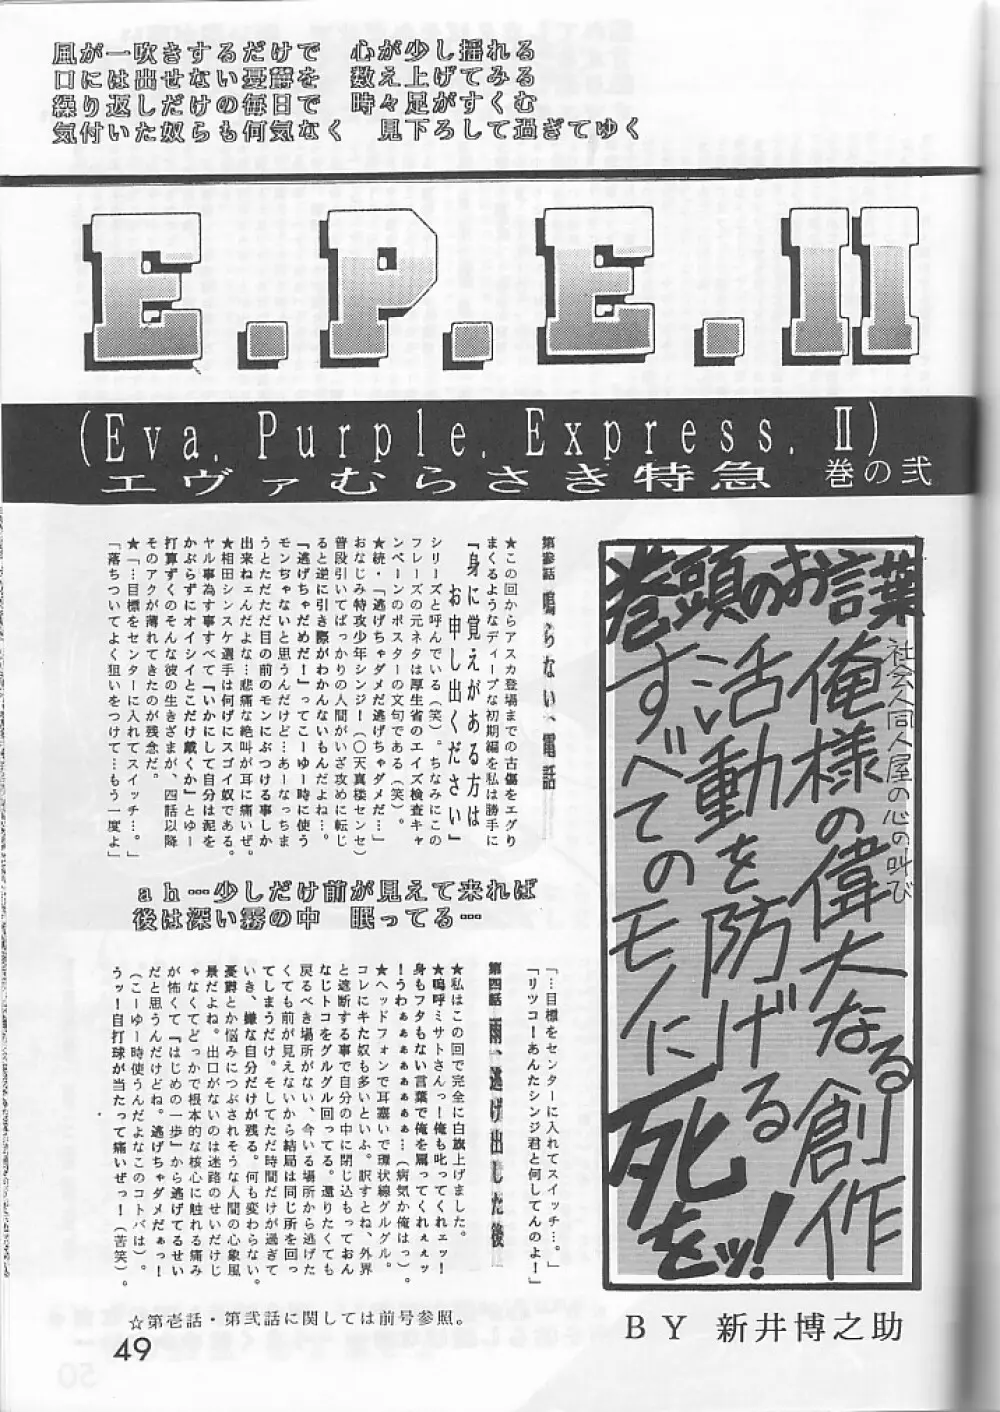 風が一吹きするだけで 心が少し揺れる
口には出せない憂鬱を 数え上げてみる
繰り返しだけの毎日で 時々足がすくむ
気付いた奴らも何気なく 見下ろして過ぎてゆく
E.P.E.II
(Eva. Purple. Express. Ⅱ)
エヴァむらさき特急 巻の弐
巻頭のお言葉
社会人同人屋の心の叫び
俺様の偉大なる創作
活動を防げる
すべてのモノに
死をッ!
BY 新井博之助
第参話 鳴らない、電話
★この回からアスカ登場までの古傷をエグり
まくるようなディープな初期編を私は勝手に
『身に覚えがある方は
お申し出ください』
シリーズと呼んでいる(笑)。ちなみにこの
フレーズの元ネタは厚生省のエイズ検査キャ
ンペーンのポスターの文句である(笑)。
★統・「逃げちゃダメだ逃げちゃダメだ…」
おなじみ特攻少年シンジ!(〇天真様センセ)
普段引いてばっかりの人間がいざ攻めに転じ
ると逆に引き際がわかんないもんだよね…。
『逃げちゃだめだ!』ってこーゆー時に使う
モンぢゃないと思うんだけど…あーなっちま
うとただただ目の前のモンにぶつける事しか
出来ねェんだよな…悲痛な絶叫が耳に痛いぜ。
★相田シンスケ選手は何げにスゴイ奴である。
ヤル事為す事すべて『いかにして自分は泥を
かぶらずにオイシイとこだけ戴くか』とゆー
打算ずくのそんな彼の生きざまが、四話以降
そのアクが薄れてきたのが残念だ。
★「…目標をセンターに入れてスイッチ…。」
「落ちついてよく狙いをつけて…もう一度よ」
ah…少しだけ前が見えて来れば
後は深い霧の中 眠ってる…
「…目標をセンターに入れてスイッチ…。」
「リツコ!あんたシンジ君と何してんのよ!」
第四話 雨、逃げ出した後
★私はこの回で完全に白旗上げました。
★嗚呼ミサトさんっ!俺も叱ってくれェッ!
身もフタもない言葉で俺を罵ってくれぇぇッ
!うわぁぁぁぁぁぁぁ…(病気か俺はっ)。
★ヘッドフォンで耳塞いで環状線グルグル。
コレにキた奴も多いといふ。訳すとね、外界
と遮断する事で自分の中に閉じ込もっておん
なじトコをグルグル回ってる。還りたくても
戻るべき場所がない、今いる場所から逃げた
くても前が見えないから結局は同じ所を回っ
てしまうだけ。そしてただ時間だけが過ぎて
いき、嫌な自分だけが残る。何も変わらない。
憂鬱とか悩みにつぶされそうな人間の心象風
景だよね。出口がないのは迷路のせいだけじ
ゃなくてどっかで根本的な核心に触れる痛み
が怖くて『はじめの一歩』から逃げてるせい
だと思うんだけどね。逃げちゃダメだぁっ!
(こーゆー時使うんだよなこのコトバは)。
うッ!自打球が当たって痛いぜっ!(苦笑)。
☆第壱話・第弐話に関しては前号参照。
49